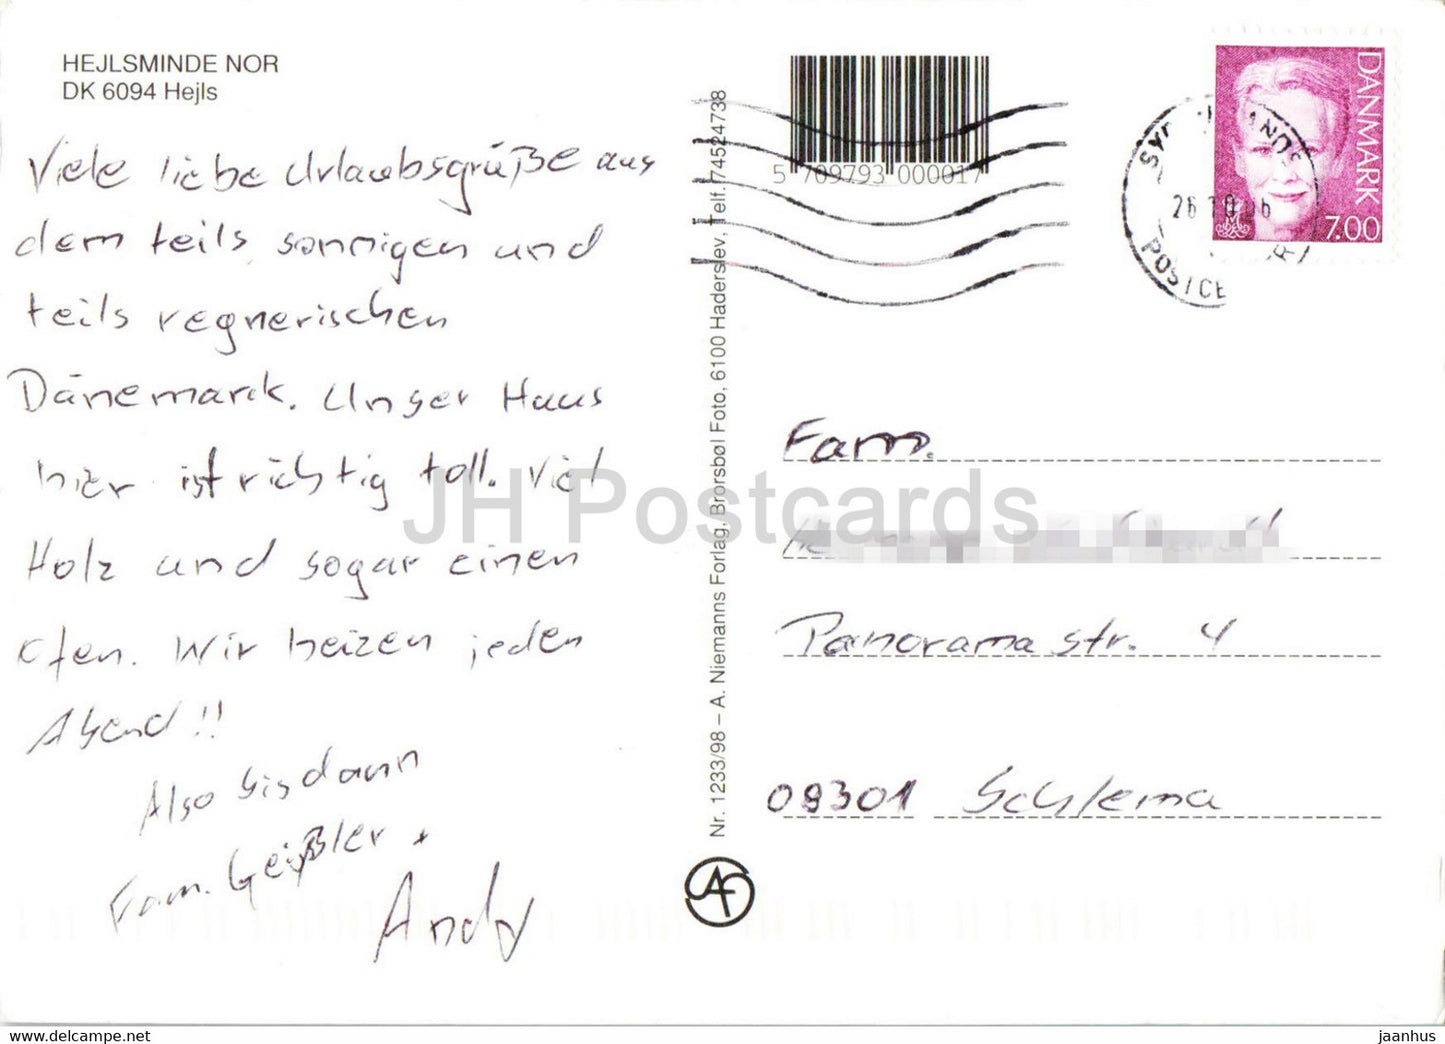 HEJLSMINDE NOR
DK 6094 Hejls
Viele liebe Urlaubsgrüße aus
dem teils sonnigen und
teils regnerischen
Dänemark. Unser Haus
hier ist richtig toll. Viel
Holz und sogar einen
Ofen. Wir heizen jeden
Abend!!
Also bis dann
Fam. Geißler +
Andy
Nr. 1233/98 – A. Niemanns Forlag, Brorsbøl Foto, 6100 Haderslev, Telf. 74524738
5 709793 000017
DANMARK
7.00
POSTCE
Fam.
Panoramastr. 4
09301 Schlema
JH Postcards
hippostcard.com
jaanhus